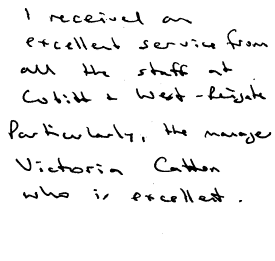 I received an
excellent service from
all the staff at
Cubitt & West - Reigate
Particularly, the manager
Victoria Catten
who is excellent.